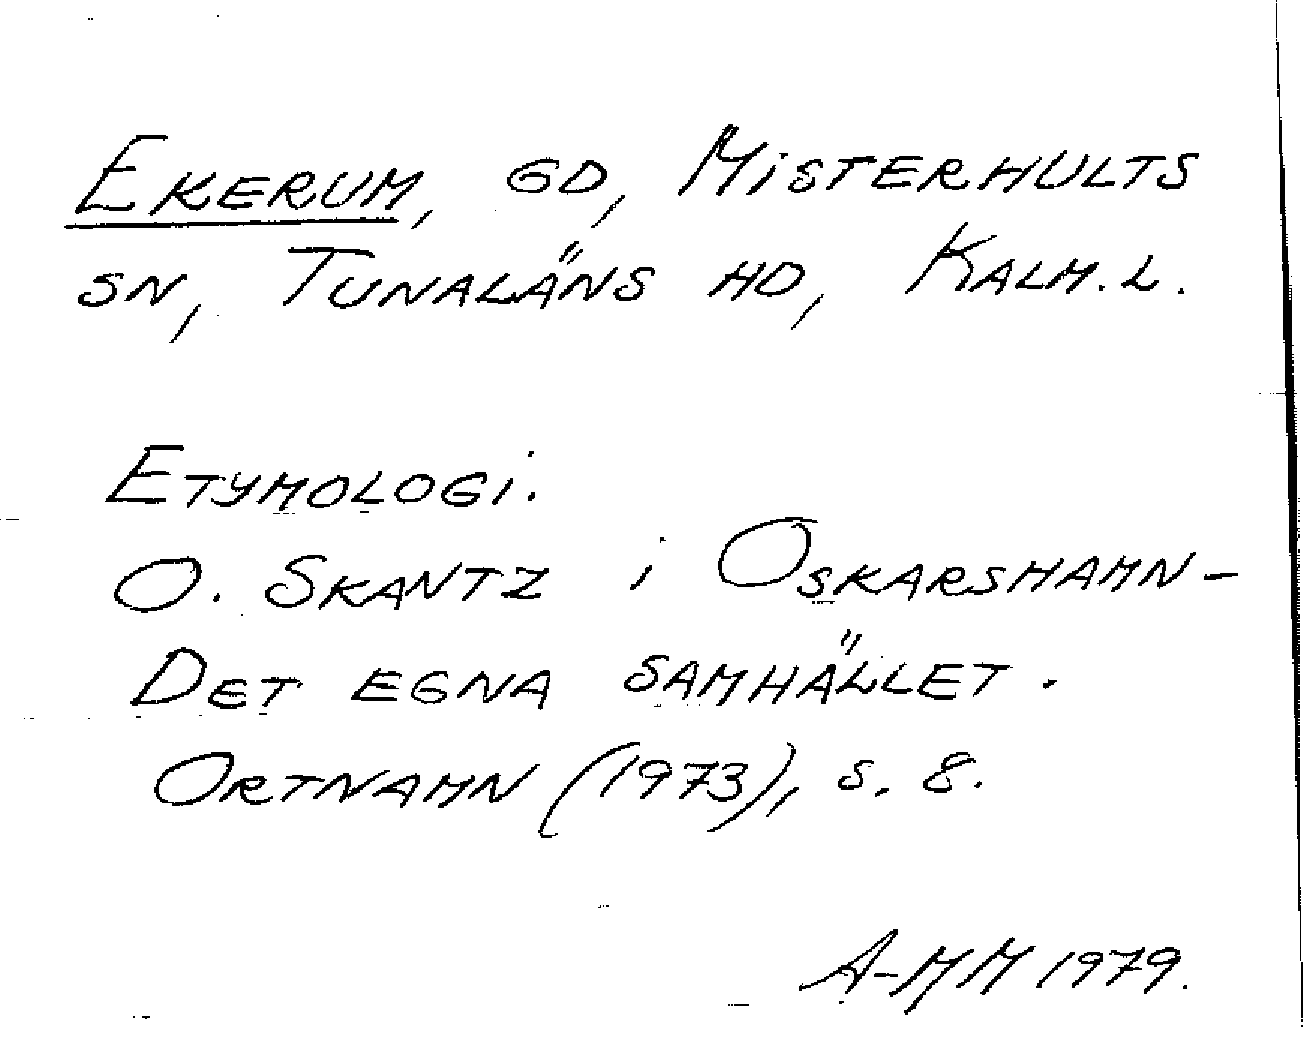 EKERUM, GD, MISTERHULTS
SN, TUNALÄNS HD, KALM. L.
ETYMOLOGI.
O. SKANTZ i OSKARSHAMN-
DET EGNA SAMHÄLLET.
ORTNAMN (1973), S. 8.
A-MM 1979.